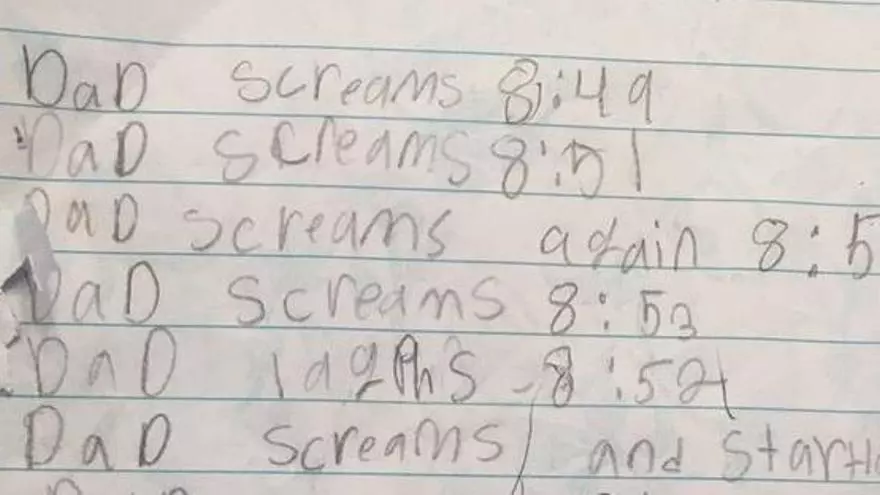 DaD screams 8:49
DaD screams 8:51
DaD screams again 8:5
DaD screams 8:53
DaD laghs 8:54
DaD screams and start